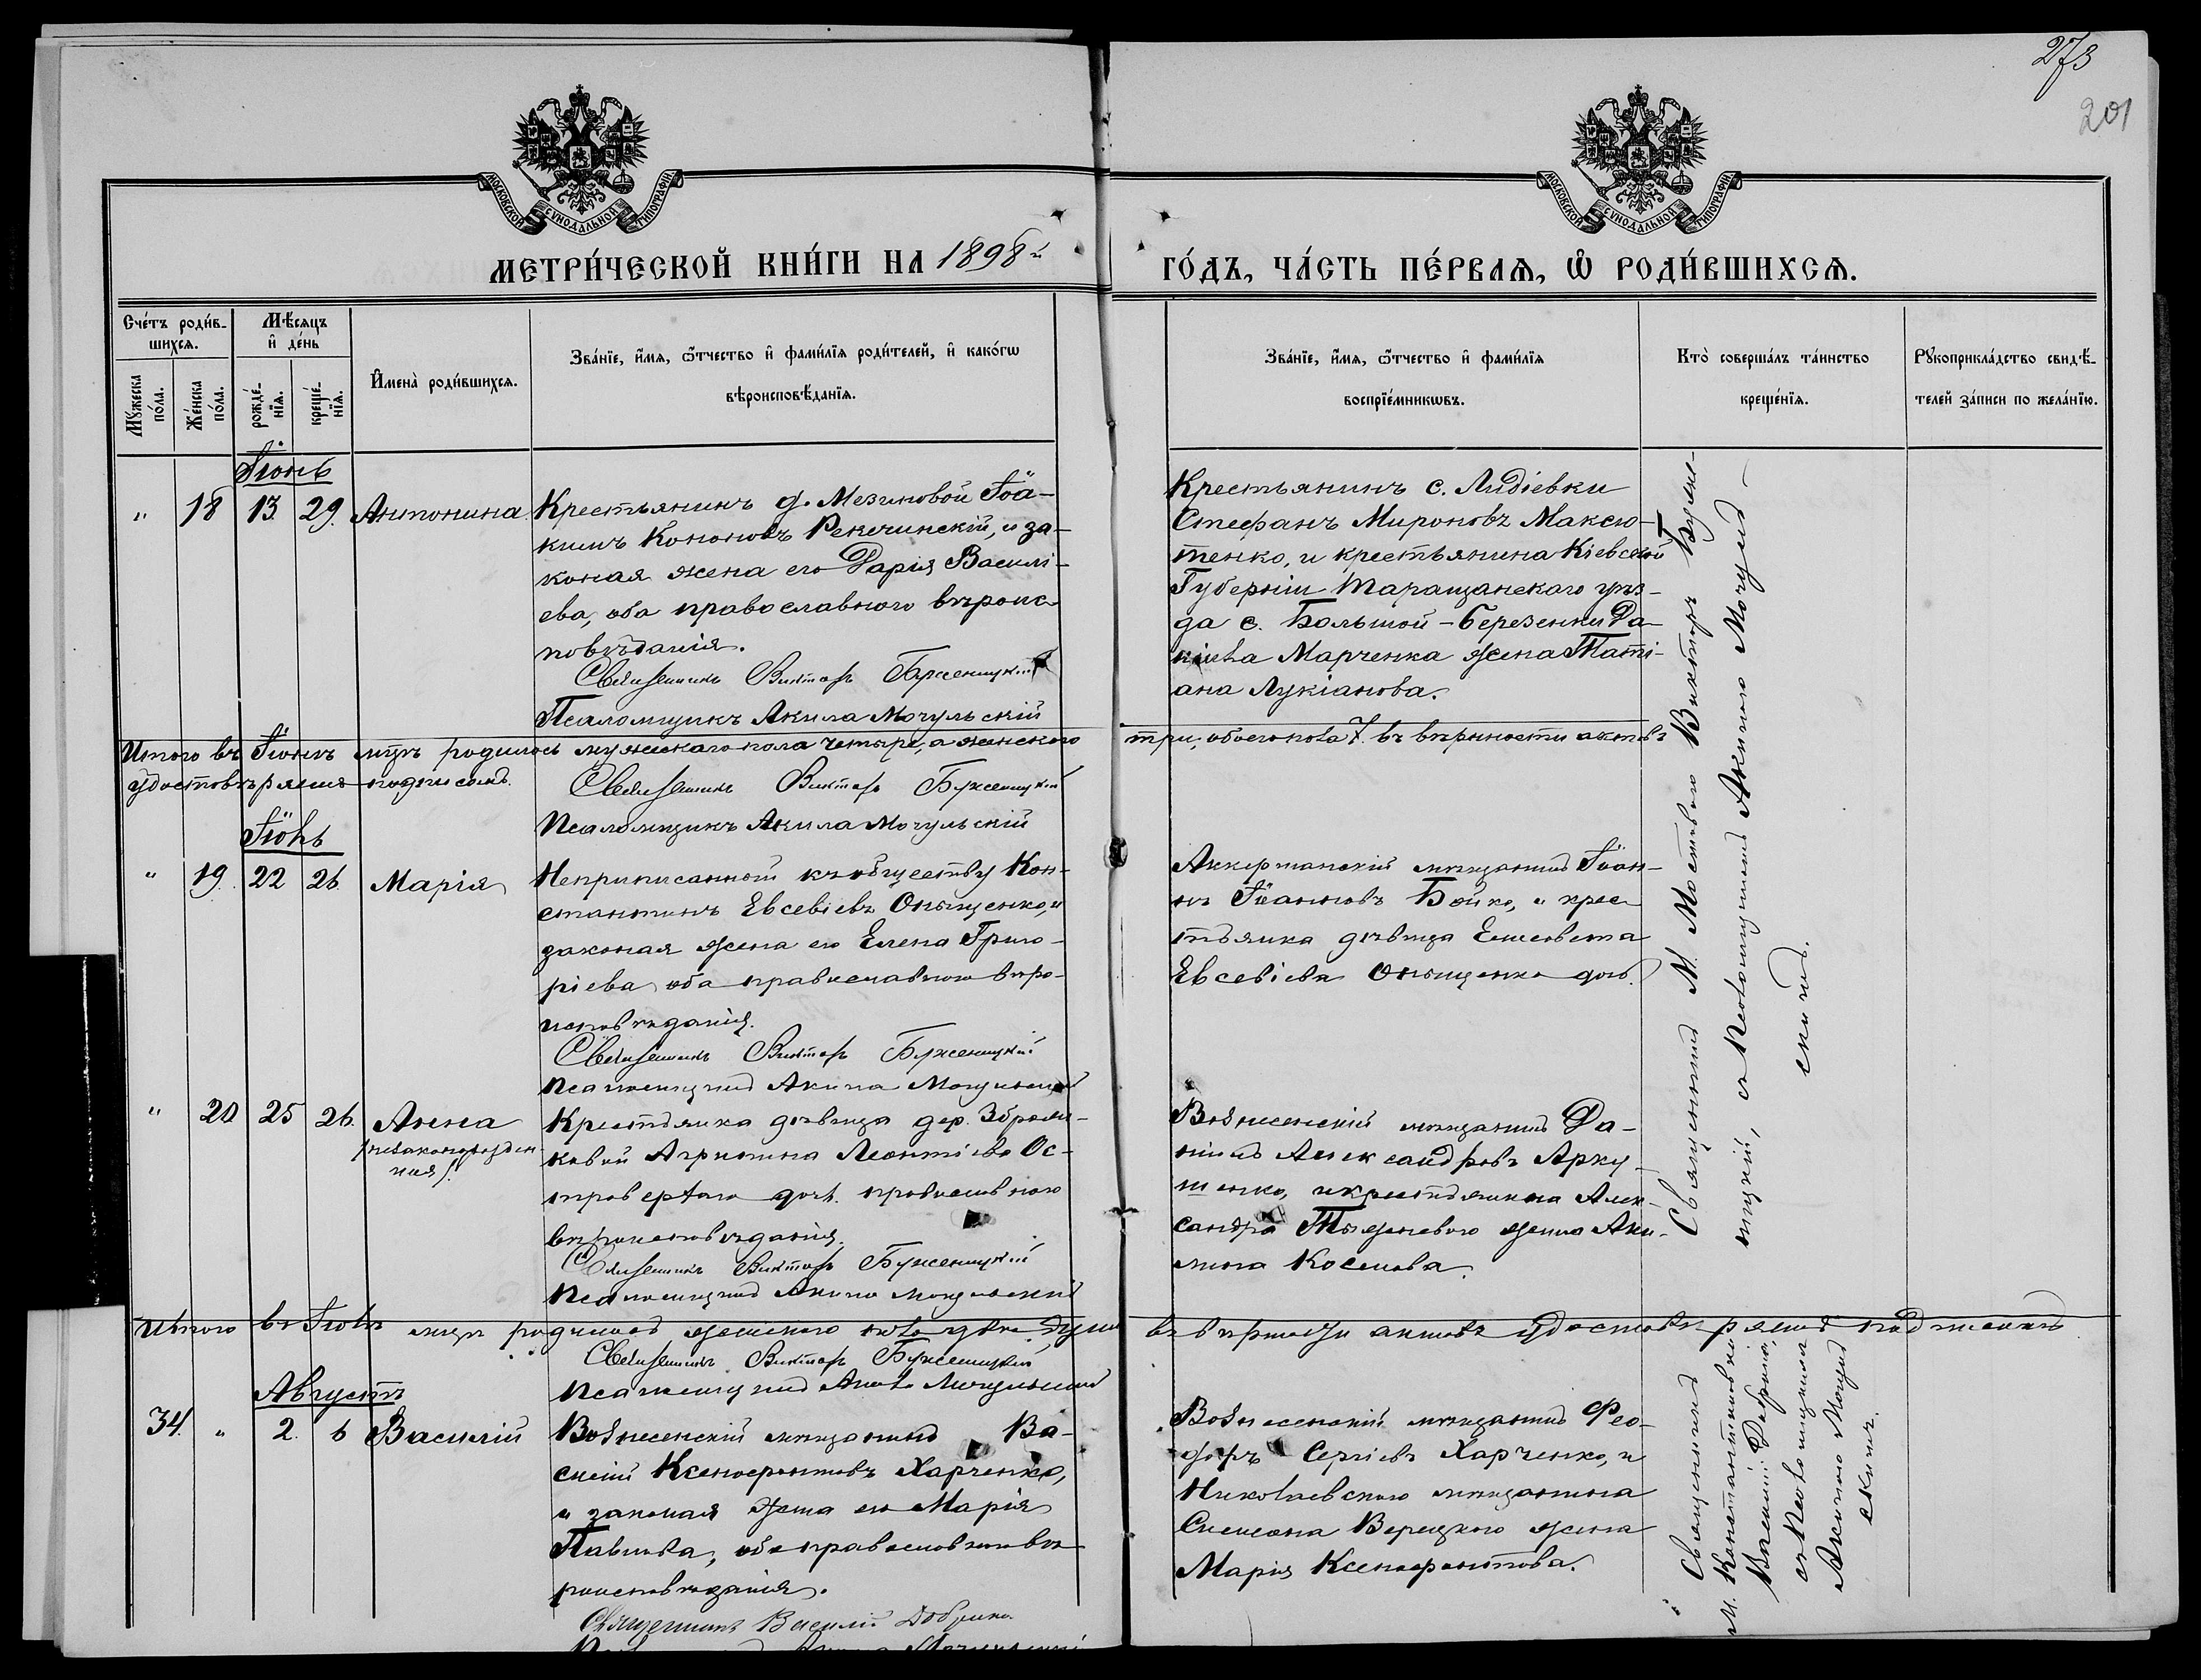 273
201
МОСКОВСКОЙ СУНОДАЛЬНОЙ ТИПОГРАФІИ
МОСКОВСКОЙ СУНОДАЛЬНОЙ ТИПОГРАФІИ
МЕТРИ́ЧЕСКОЙ КНИ́ГИ НА 1898й
ГО́ДЪ, ЧА́СТЬ ПЕ́РВАѦ, Ѡ҆ РОДИ́ВШИХСѦ.
Сче́тъ роди́в-
шихсѧ.
Мѣ́сяцъ
и҆ де́нь
Мꙋ́жеска
по́ла.
Же́нска
по́ла.
рожде́-
нїѧ.
креще́-
нїѧ.
И҆мена̀ роди́вшихсѧ.
Зва́нїе, и҆́мѧ, ѻ҆́тчество и҆ фами́лїѧ роди́телей, и҆ како́гѡ
вѣроисповѣ́данїѧ.
Зва́нїе, и҆́мѧ, ѻ҆́тчество и҆ фами́лїѧ
воспрїе́мникѡвъ.
Кто̀ соверша́лъ та́инство
креще́нїѧ.
Рꙋкоприкла́дство свидѣ́-
телей за́писи по жела́нїю.
Іюнь
" 18 13. 29. Антонина.
Крестьянинъ д. Мезиновой Іоа-
кимъ Кононовъ Рекечинскій, и за-
коная жена его Дарія Василі-
ева, оба православнаго вѣроис-
повѣданія.
Священникъ Викторъ Брженицкій
Псаломщикъ Акила Мочульскій
Крестьянинъ с. Лидіевки
Стефанъ Мироновъ Максю-
тенко, и крестьянина Кіевской
Губерніи Таращанскаго уѣз-
да с. Большой-Березенки Да-
Марченка жена Таті-
ана Лукіанова.
Итого въ Іюнѣ мцѣ родилось мужескаго пола четыре, а женскаго три, обоего пола 7. въ вѣрности актовъ
удостовѣряемъ подписомъ.
Священникъ Викторъ Брженицкій
Псаломщикъ Акила Мочульскій
Іюль
" 19. 22 26 Марія
Неприписанной къ обществу Кон-
стантинъ Евсевіевъ Онищенко, и
законая жена его Елена Григо-
ріева оба православнаго вѣро-
исповѣданія.
Священникъ Викторъ Брженицкій
Псаломщикъ Акила Мочульскій
Аккерманскій мѣщанинъ Іоан-
нъ Іоанновъ Бойко, и крес-
тьянка дѣвица Елисавета
Евсевіева Онищенко
" 20 25 26. Анна
(незаконорожден
ная).
Крестьянка дѣвица дер.
ковой Агрипина Леонтіева Ос-
православнаго
вѣроисповѣданія.
Священникъ Викторъ Брженицкій
Псаломщикъ Акила Мочульскій
Вознесенскій мѣщанинъ Да-
ніилъ Александровъ Арку-
шенко, и крестьянина Алек-
сандра жена Аки-
лина Косенова.
Священникъ М. Мостваго Викторъ Брженицкій, съ Псаломщикомъ Акилою Мочульскимъ.
Итого въ Іюлѣ мцѣ родилось женскаго пола двѣ души въ вѣрности актовъ удостовѣряемъ подписомъ
Священникъ Викторъ Брженицкій
Псаломщикъ Акила Мочульскій
Августъ
34. " 2. 6 Василій
Вознесенскій мѣщанинъ Ва-
силій Ксенофонтовъ Харченко,
и законая жена его Марія
Павлова, оба православнаго вѣ-
роисповѣданія.
Священникъ Василій Добрина.
Вознесенскій мѣщанинъ Фео-
доръ Сергіевъ Харченко, и
Николаевскаго мѣщанина
Симеона Верецкаго жена
Марія Ксенофонтова.
Священникъ
М. Константиновки
Василій Добрина,
съ Псаломщикомъ
Акилою Мочуль-
скимъ.